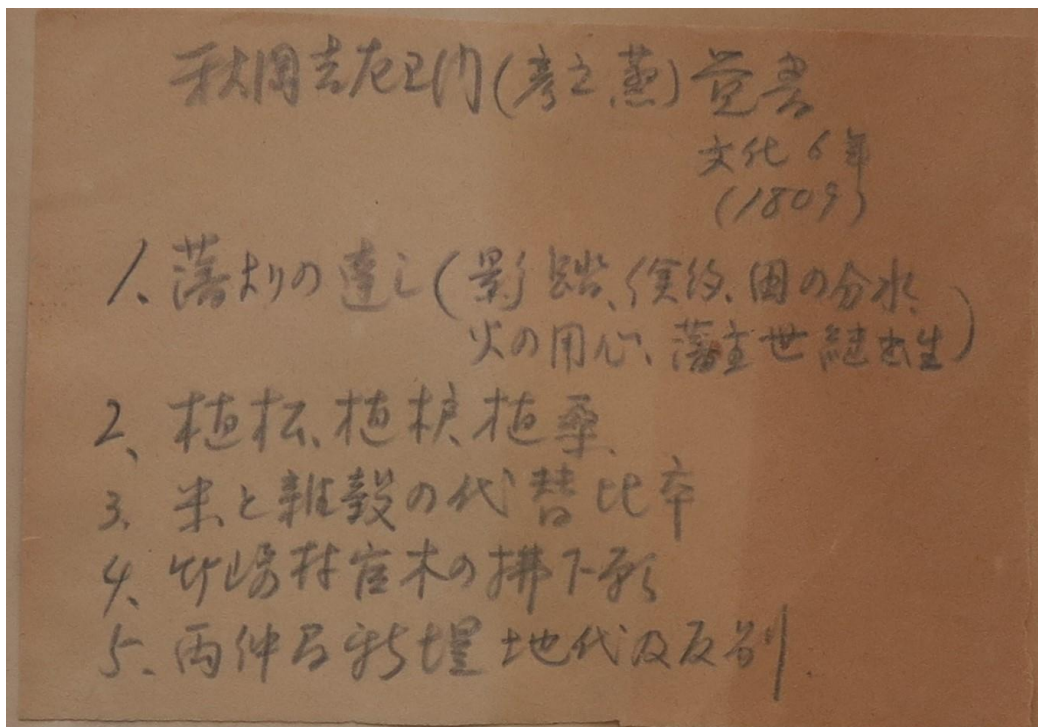 秋岡吉左卫门(彦之蒸)覚書
文化6年
(1809)
1、藩よりの達し(影踏、倹約、田の分水、
火の用心、藩主世継出生)
2、植松、植栌、植桑、
3、米と雑穀の代替比率
4、竹崎村官木の拂下願
5、両仲石新堤地代及反別